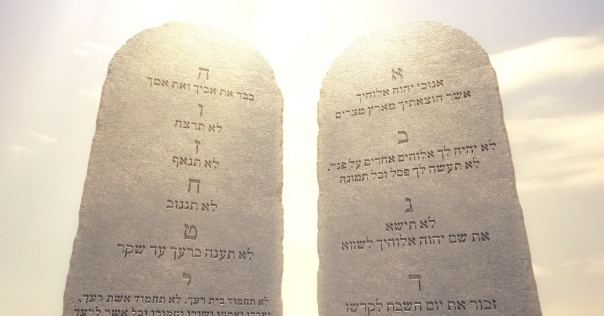 א
אנוכי יהוה אלוהיך
אשר הוצאתיך מארץ מצרים
ב
לא יהיה לך אלוהים אחרים על פניי.
לא תעשה לך פסל וכל תמונה
ג
לא תישא
את שם יהוה אלוהיך לשווא
ד
זכור את יום השבת לקדשו
ה
כבד את אביך ואת אמך
ו
לא תרצח
ז
לא תנאף
ח
לא תגנוב
ט
לא תענה ברעך עד שקר
י
לא תחמוד בית רעך. לא תחמוד אשת רעך,
ועבדו ואמתו ושורו וחמורו וכל אשר לרעך